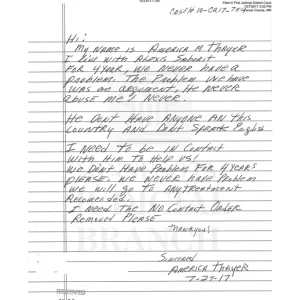 Filed in First Judicial District Court
Case# 10-CR-17-
Hi!
My name is America M. Thayer
I live with Alexis Saborit
For 4 year, we never have a
problem. The problem we have
was an argument, He never
abuse me! Never.
He Dont Have Anyone An this
Country And Dont Speake English
I Need to be in Contact
With Him To Help us!
We Dont Have Problem For 4 years
Please. We never Have Problem
We will go to Any treatment
Recomended.
I Need The No Contact Order
Removed Please
Thankyou!
Sincered
America Thayer
7-27-17